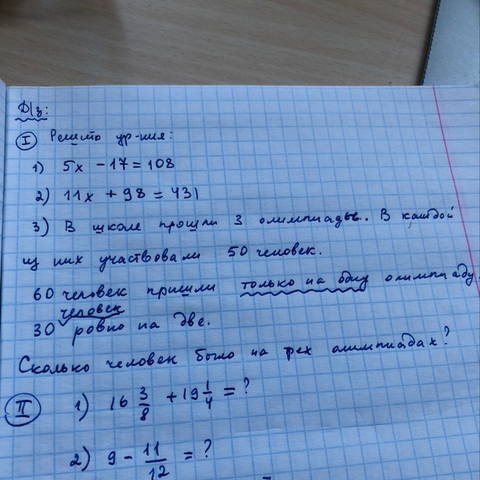 Д/з:
I Решить ур-ния:
1) 5x - 17 = 108
2) 11x + 98 = 431
3) В школе прошли 3 олимпиады. В каждой
из них участвовали 50 человек.
60 человек пришли только на одну олимпиаду.
человек
30 ровно на две.
Сколько человек было на трех олимпиадах?
II 1) 16 3/8 + 19 1/4 = ?
2) 9 - 11/12 = ?